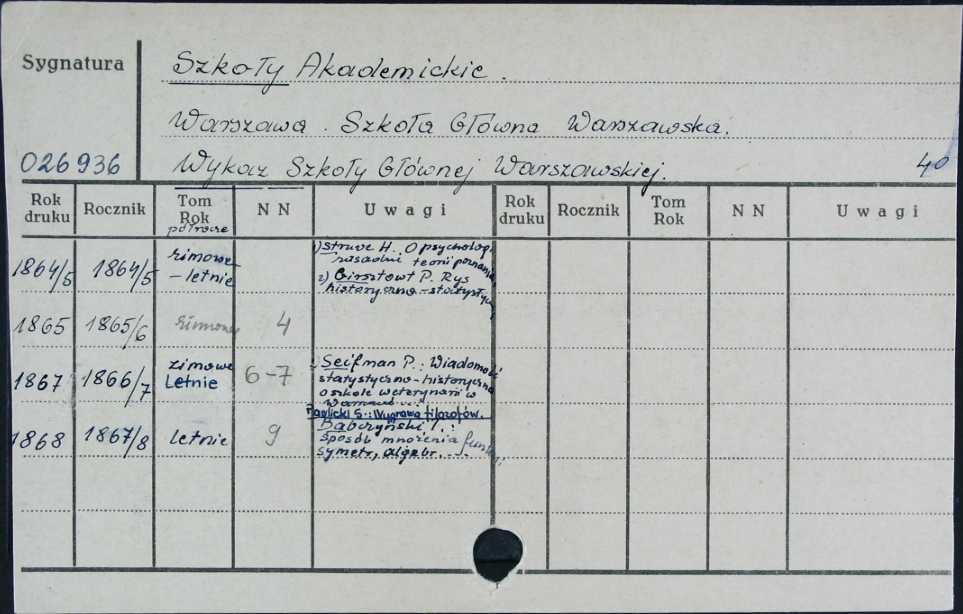 Sygnatura
Szkoły Akademickie.
Warszawa. Szkoła Główna Warszawska.
026936
Wykaz Szkoły Głównej Warszawskiej. 4°
Rok druku Rocznik Tom Rok półrocze N N Uwagi Rok druku Rocznik Tom Rok N N Uwagi
1864/5 1864/5 zimowe - letnie
1) Struve H. O psycholog.
zasadzie teorii poznania
2) Girsztowt P. Rys
historyczno-statystyczny
1865 1865/6 zimowe 4
1867 1866/7 zimowe Letnie 6-7
Seifman P.: Wiadomość
statystyczno-historyczna
o szkole weterynarii w
Pawlicki S.: Wyprawa filozofów.
1868 1867/8 letnie 9
Babczyński T.:
Sposób mnożenia
symetr, algebr. ...